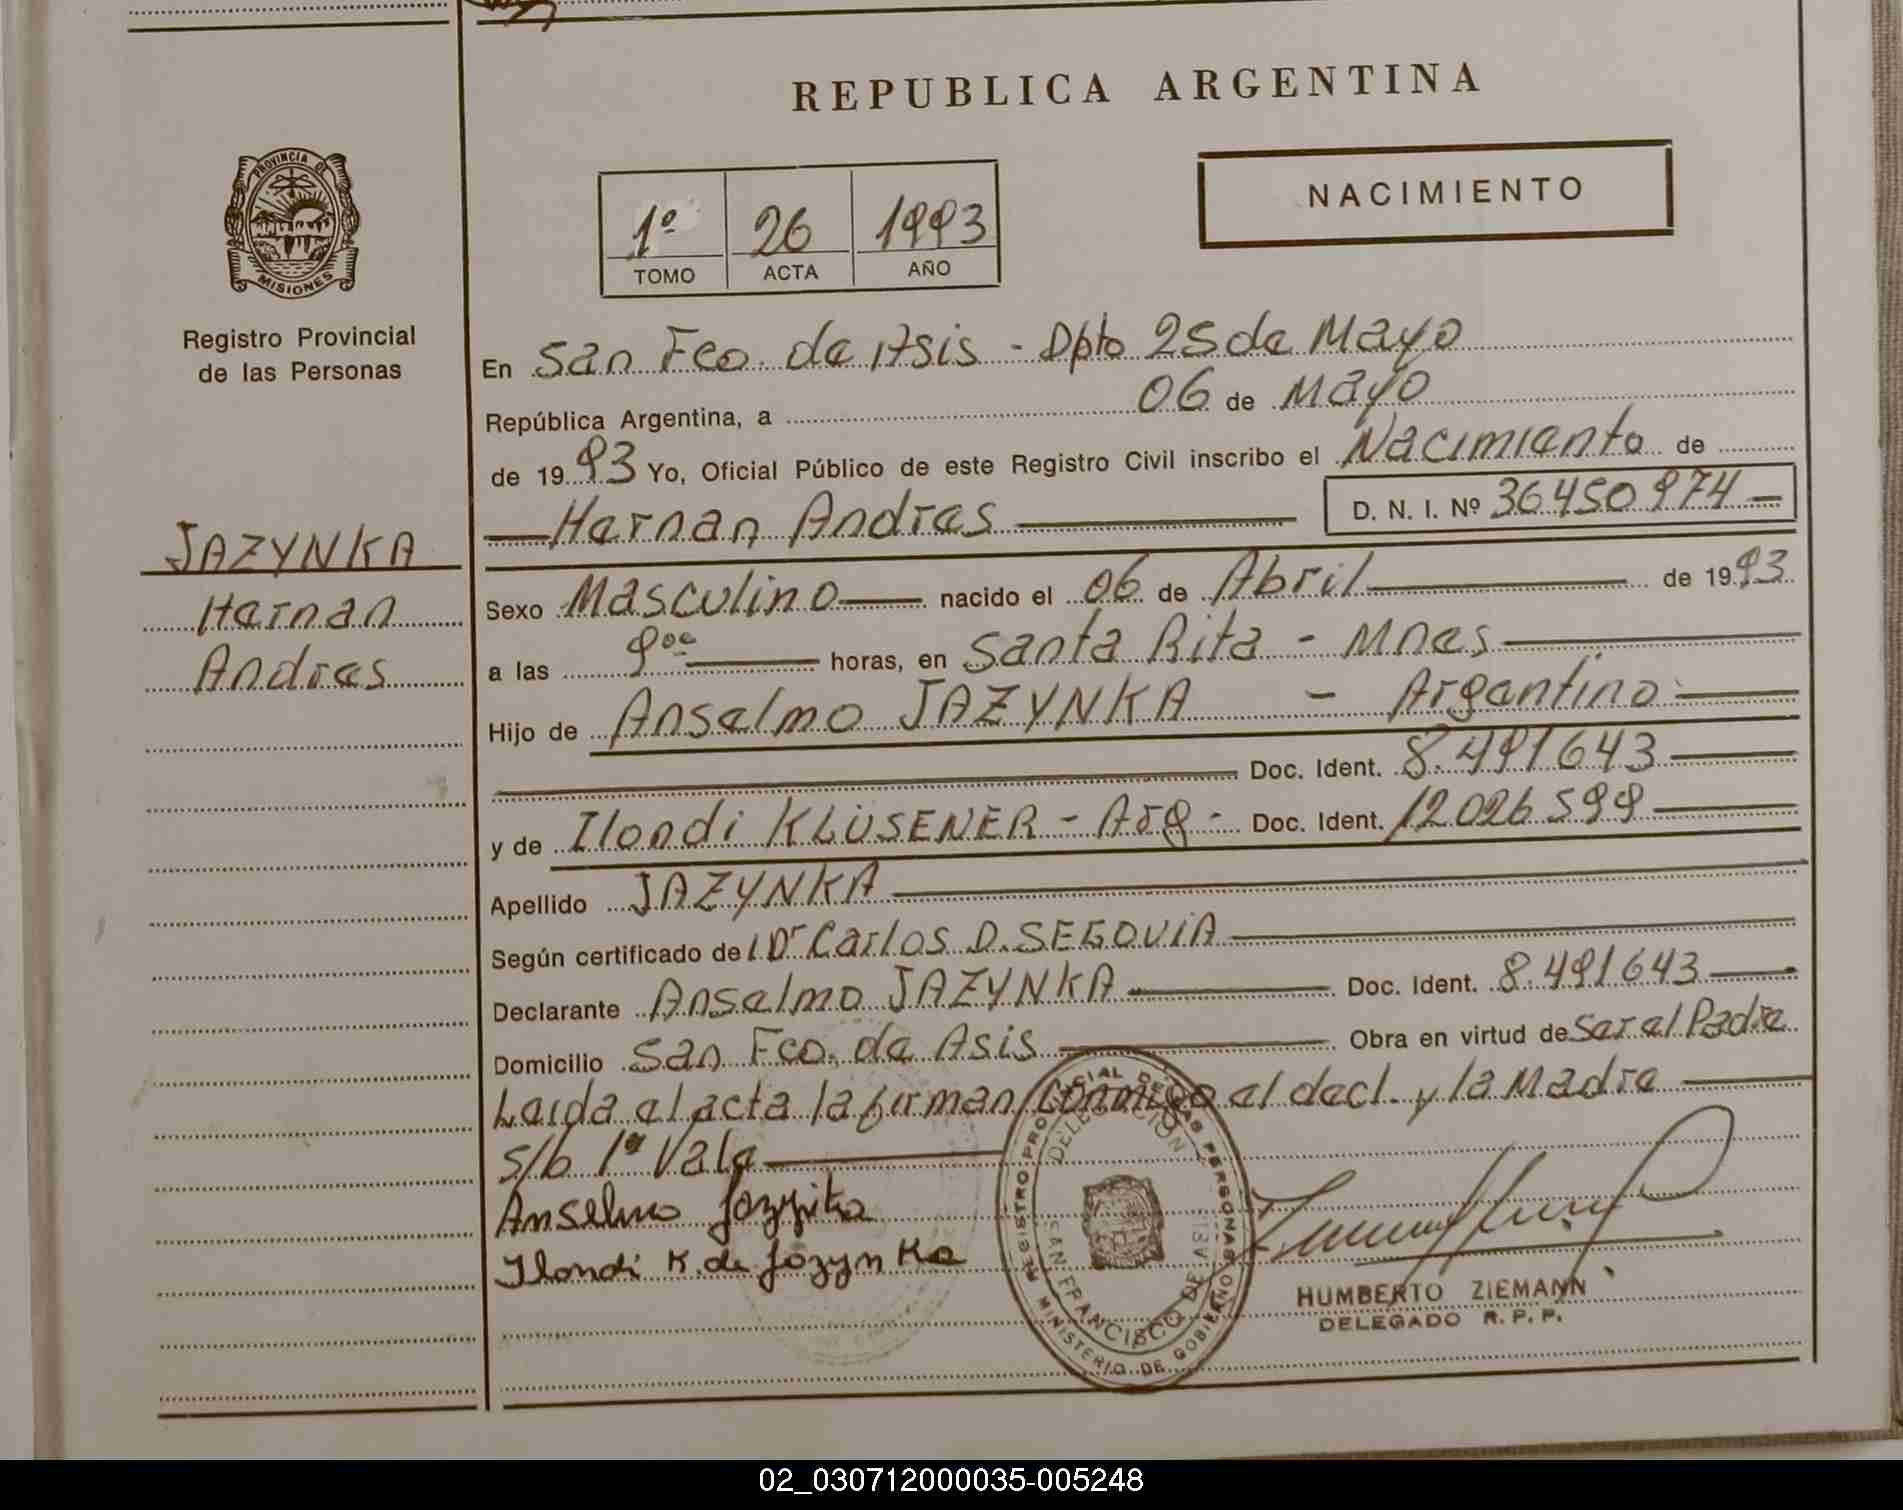 REPUBLICA ARGENTINA
PROVINCIA DE
MISIONES
Registro Provincial
de las Personas
1º 26 1993
TOMO ACTA AÑO
NACIMIENTO
JAZYNKA
Hernan
Andres
En San Fco. de Asis - Dpto 25 de Mayo
República Argentina, a 06 de Mayo
de 1993 Yo, Oficial Público de este Registro Civil inscribo el Nacimiento de
Hernan Andres D. N. I. Nº 36450974
Sexo Masculino nacido el 06 de Abril de 1993
a las 9⁰⁰ horas, en Santa Rita - Mnes
Hijo de Anselmo JAZYNKA - Argentino
Doc. Ident. 8.491643
y de Ilondi KLÜSENER - Arg - Doc. Ident. 12026599
Apellido JAZYNKA
Según certificado del Dr Carlos D. SEGOVIA
Declarante Anselmo JAZYNKA Doc. Ident. 8.491643
Domicilio San Fco. de Asis Obra en virtud de Ser el Padre
Leida el acta la firman Conmigo el decl. y la Madre
s/b 1ª Vale
Anselmo Jazynka
Ilondi K. de Jazynka
REGISTRO PROVINCIAL DE LAS PERSONAS
DELEGACION
SAN FRANCISCO DE ASIS
MINISTERIO DE GOBIERNO
HUMBERTO ZIEMANN
DELEGADO R. P. P.
02_030712000035-005248